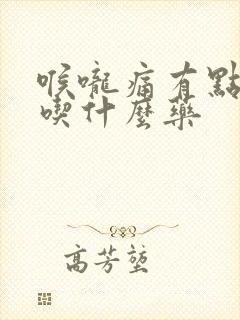 喉嚨痛有點
喫什麼藥
高芳堃